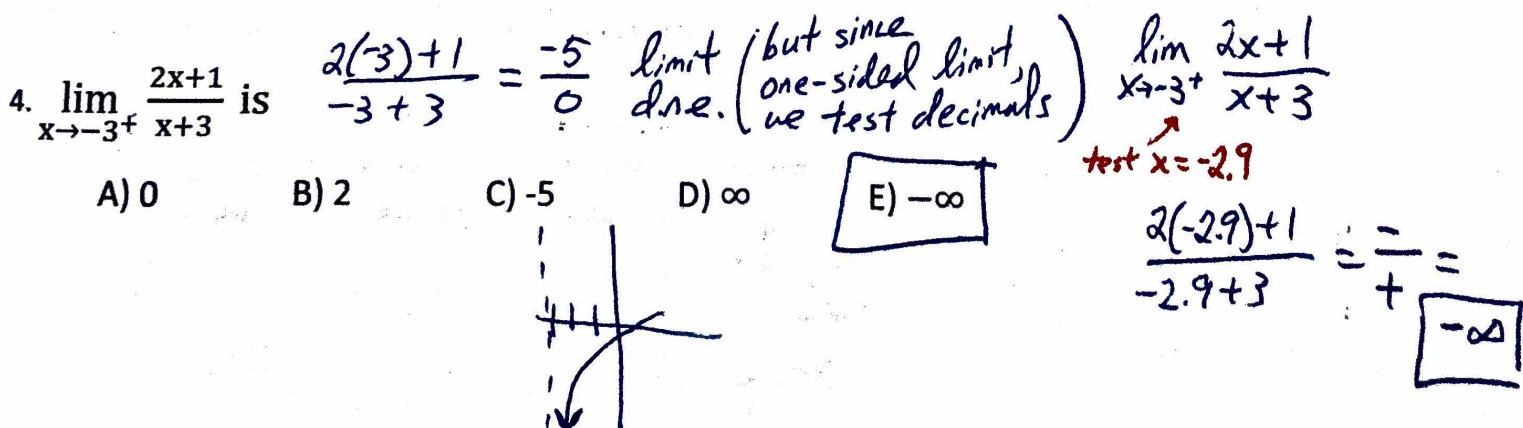 4. lim x→-3⁺ (2x+1)/(x+3) is
(2(-3)+1)/(-3+3) = -5/0 limit d.n.e. (but since one-sided limit, we test decimals)
lim x→-3⁺ (2x+1)/(x+3)
test x = -2.9
A) 0 B) 2 C) -5 D) ∞ E) -∞
(2(-2.9)+1)/(-2.9+3) = -/+ =
-∞